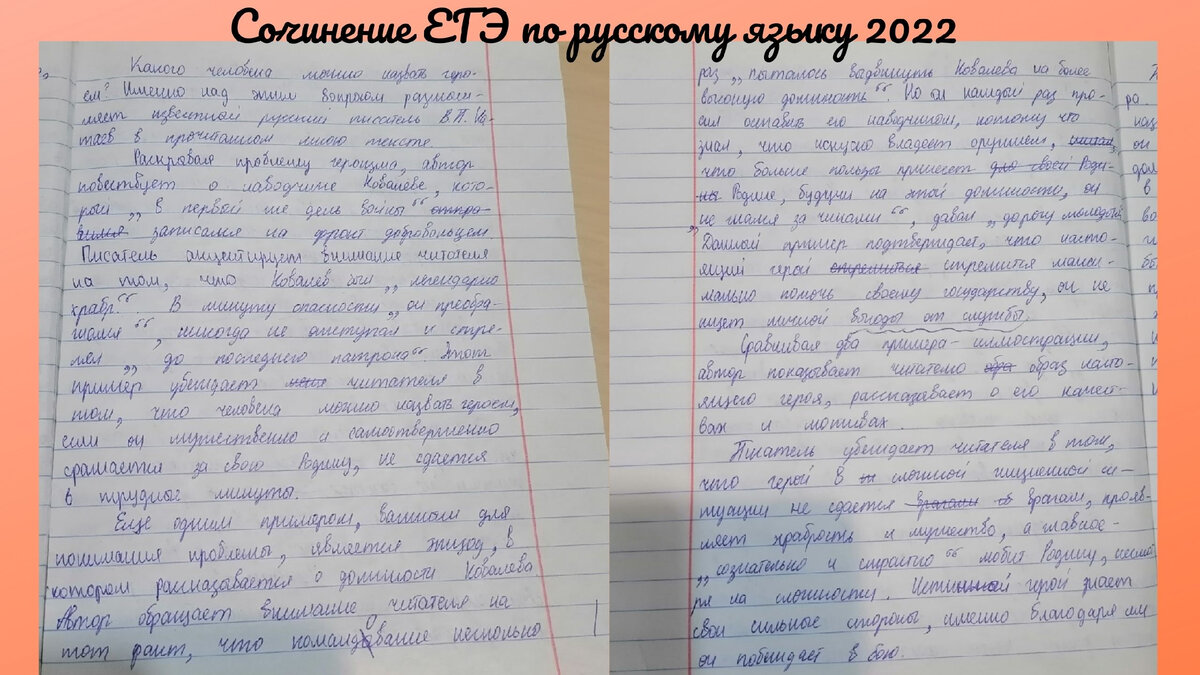 Сочинение ЕГЭ по русскому языку 2022
Какого человека можно назвать геро-
ем? Именно над этим вопросом размыш-
ляет известный русский писатель В.П. Ка-
таев в прочитанном мною тексте.
Раскрывая проблему героизма, автор
повествует о наводчике Ковалёве, кото-
рый „в первый же день войны“ отпра-
вился записался на фронт добровольцем.
Писатель акцентирует внимание читателя
на том, что Ковалев был „легендарно
храбр“. В минуту опасности „он преобра-
жался“, никогда не отступал и стре-
лял „до последнего патрона“. Этот
пример убеждает меня читателя в
том, что человека можно назвать героем,
если он мужественно и самоотверженно
сражается за свою Родину, не сдается
в трудные минуты.
Еще одним примером, важным для
понимания проблемы, является эпизод, в
котором рассказывается о должности Ковалева
Автор обращает внимание читателя на
тот факт, что командование несколько
раз „пыталось выдвинуть Ковалева на более
высокую должность“. Но он каждый раз про-
сил оставить его наводчиком, потому что
знал, что искусно владеет орудием,
что больше пользы принесет для своей Роди-
ны Родине, будучи на этой должности, он
„не гнался за чинами“, давал „дорогу молодым
Данный пример подтверждает, что насто-
ящий герой стремиться стремится макси-
мально помочь своему государству, он не
ищет личной выгоды от службы.
Сравнивая два примера-иллюстрации,
автор показывает читателю обра образ насто-
ящего героя, рассказывает о его качест-
вах и мотивах.
Писатель убеждает читателя в том,
что герой в сложной жизненной си-
туации не сдается врагами врагам, прояв-
ляет храбрость и мужество, а главное-
„сознательно и страстно“ любит Родину, несмот
ря на сложности. Истинный герой знает
свои сильные стороны, именно благодаря им
он побеждает в бою.